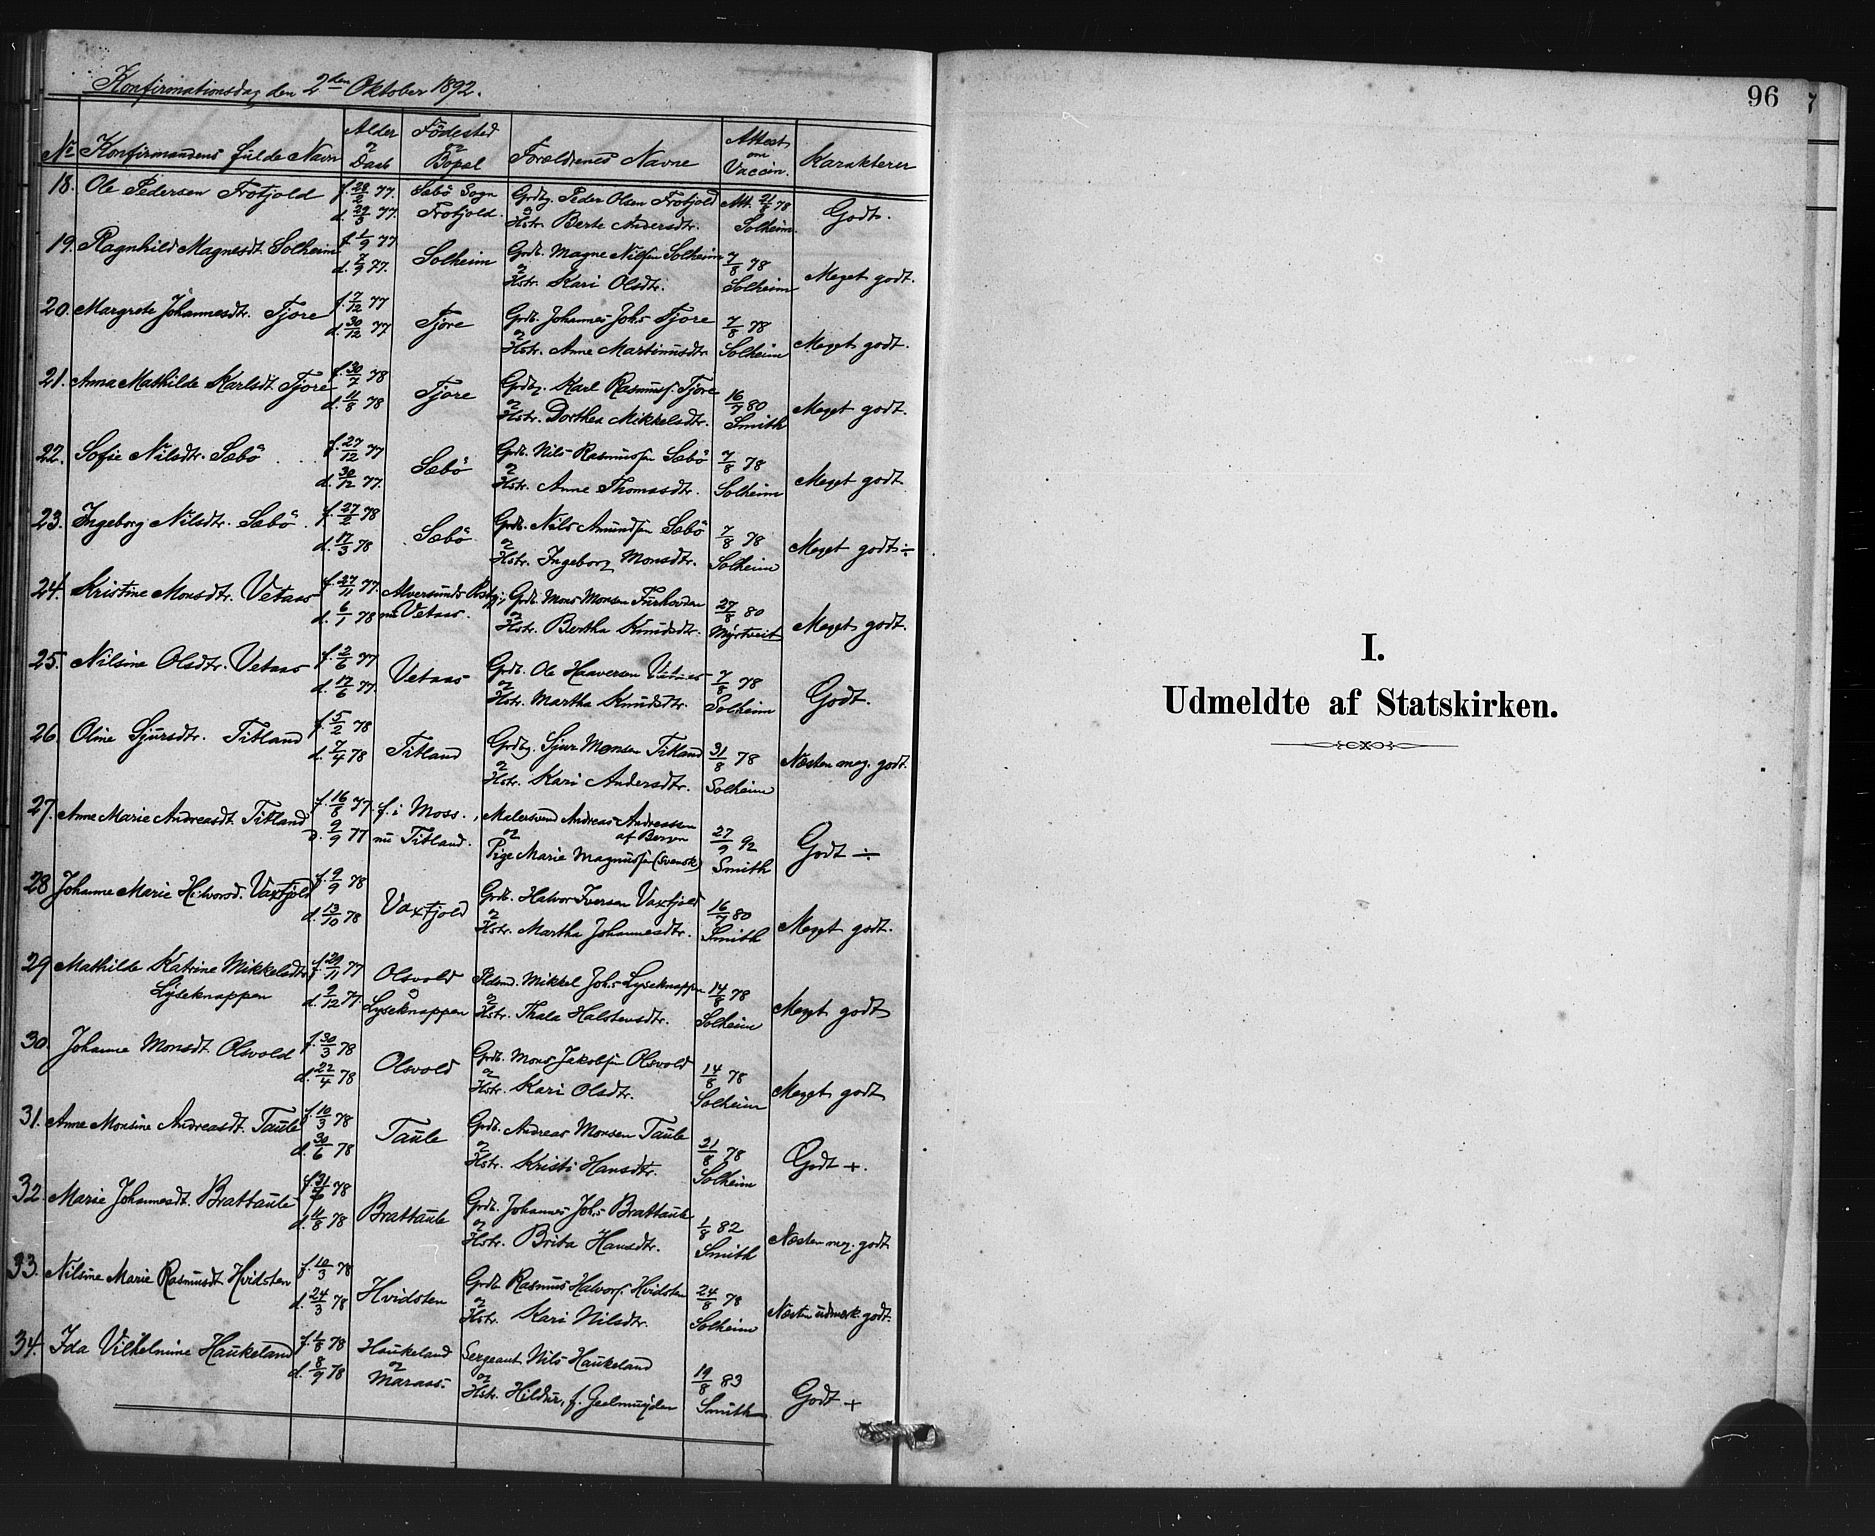 Konfirmationsdag den 2den Oktober 1892.
No Konfirmandens fulde Navn | Alder og Daab | Födested og Bopæl | Forældrenes Navne | Attest om Vaccin. | Karakterer
18. Ole Pedersen Frotjold | f. 28/2 77. d. 29/3 77. | Sæbö Sogn Frotjold. | Grdbg. Peder Olsen Frotjold og Hstr. Berte Andersdtr. | Att. 21/8 78 Solheim. | Godt.
19. Ragnhild Magnesdt. Solheim | f. 1/9 77 d. 7/9 77. | Solheim | Grdb. Magne Nilsen Solheim og Hstr. Kari Olsdtr. | 7/8 78 Solheim | Meget godt.
20. Margrete Johannesdtr. Fjore | f. 7/12 77 d. 30/12 77 | Fjore | Grdb. Johannes Johs Fjore og Hstr. Anne Martinusdtr. | 7/8 78 Solheim | Meget godt.
21. Anna Mathilde Karlsdt. Fjore | f. 30/7 78 d. 11/8 78 | Fjore | Grdbg. Karl Rasmuss. Fjore og Hstr. Dorthea Mikkelsdtr. | 16/7 80 Smith | Meget godt.
22. Sofie Nilsdtr. Sæbö | f. 27/12 77 d. 30/12 77. | Sæbö | Grdb. Nils Rasmussen Sæbö og Hstr. Anne Thomasdtr. | 7/8 78 Solheim | Meget godt.
23. Ingeborg Nilsdtr. Sæbö | f. 27/2 78 d. 17/3 78 | Sæbö | Grdb. Nils Amundsen Sæbö og Hstr. Ingeborg Monsdtr. | 7/8 78 Solheim | Meget godt ÷
24. Kristine Monsdtr. Vetaas | f. 27/11 77. d. 6/1 78 | Alversunds Prstgj., nu Vetaas. | Grdb. Mons Monsen Furhovden og Hstr. Bertha Knudsdtr. | 27/8 80 Myrtveit | Meget godt.
25. Nilsine Olsdtr. Vetaas | f. 2/6 77 d. 17/6 77. | Vetaas | Grdb. Ole Haaversen Vetaas og Hstr. Martha Knudsdtr. | 7/8 78 Solheim | Godt.
26. Oline Sjursdtr. Titland | f. 5/2 78 d. 7/4 78 | Titland | Grdbg. Sjur Monsen Titland og Hstr. Kari Andersdtr. | 31/8 78 Solheim | Næsten meg. godt.
27. Anne Marie Andreasdt. Titland | f. 16/8 77. d. 9/9 77 | f. i Moss., nu Titland. | Malersvend Andreas Andreassen af Bergen og Pige Marie Magnussen (svensk) | 27/9 92 Smith | Godt ÷
28 Johanne Marie Halvorsd. Vaxtjold | f. 9/9 78 d. 13/10 78 | Vaxtjold | Grdb. Halvor Iversen Vaxtjold og Hstr. Martha Johannesdtr. | 16/7 80 Smith | Meget godt.
29 Mathilde Katrine Mikkelsdtr Lyseknappen | f. 29/11 77 d. 9/12 77. | Olsvold Lyseknappen | Pldsmd. Mikkel Johs Lyseknappen og Hstr. Thala Halstensdtr. | 14/8 78 Solheim | Meget godt
30. Johanne Monsdt. Olsvold | f. 30/3 78 d. 22/4 78 | Olsvold | Grdb. Mons Jakobsen Olsvold og Hstr. Kari Olsdtr. | 14/8 78 Solheim | Meget godt
31. Anne Monsine Andreasdt. Taule | f. 10/3 78 d. 30/6 78 | Taule | Grdb. Andreas Monsen Taule og Hstr. Kristi Hansdtr. | 21/8 78 Solheim | Godt +.
32. Marie Johannesdt. Brattaule | f. 21/6 78 d. 11/8 78 | Brattaule | Grdb. Johannes Johs Brattaule og Hstr. Brita Hansdtr. | 1/8 82 Smith | Næsten meg. godt
33. Nilsine Marie Rasmusdt. Hvidsten | f. 10/3 78 d. 24/3 78 | Hvidsten | Grdb. Rasmus Halvors. Hvidsten og Hstr. Kari Nilsdtr. | 24/8 78 Solheim | Næsten udmærk. godt.
34. Ida Vilhelmine Haukeland | f. 1/8 78 d. 8/9 78 | Haukeland og Maraas. | Sergeant Nils Haukeland og Hstr. Hildur, f. Geelmuyden | 19/8 83 Smith | Godt +
96
I.
Udmeldte af Statskirken.